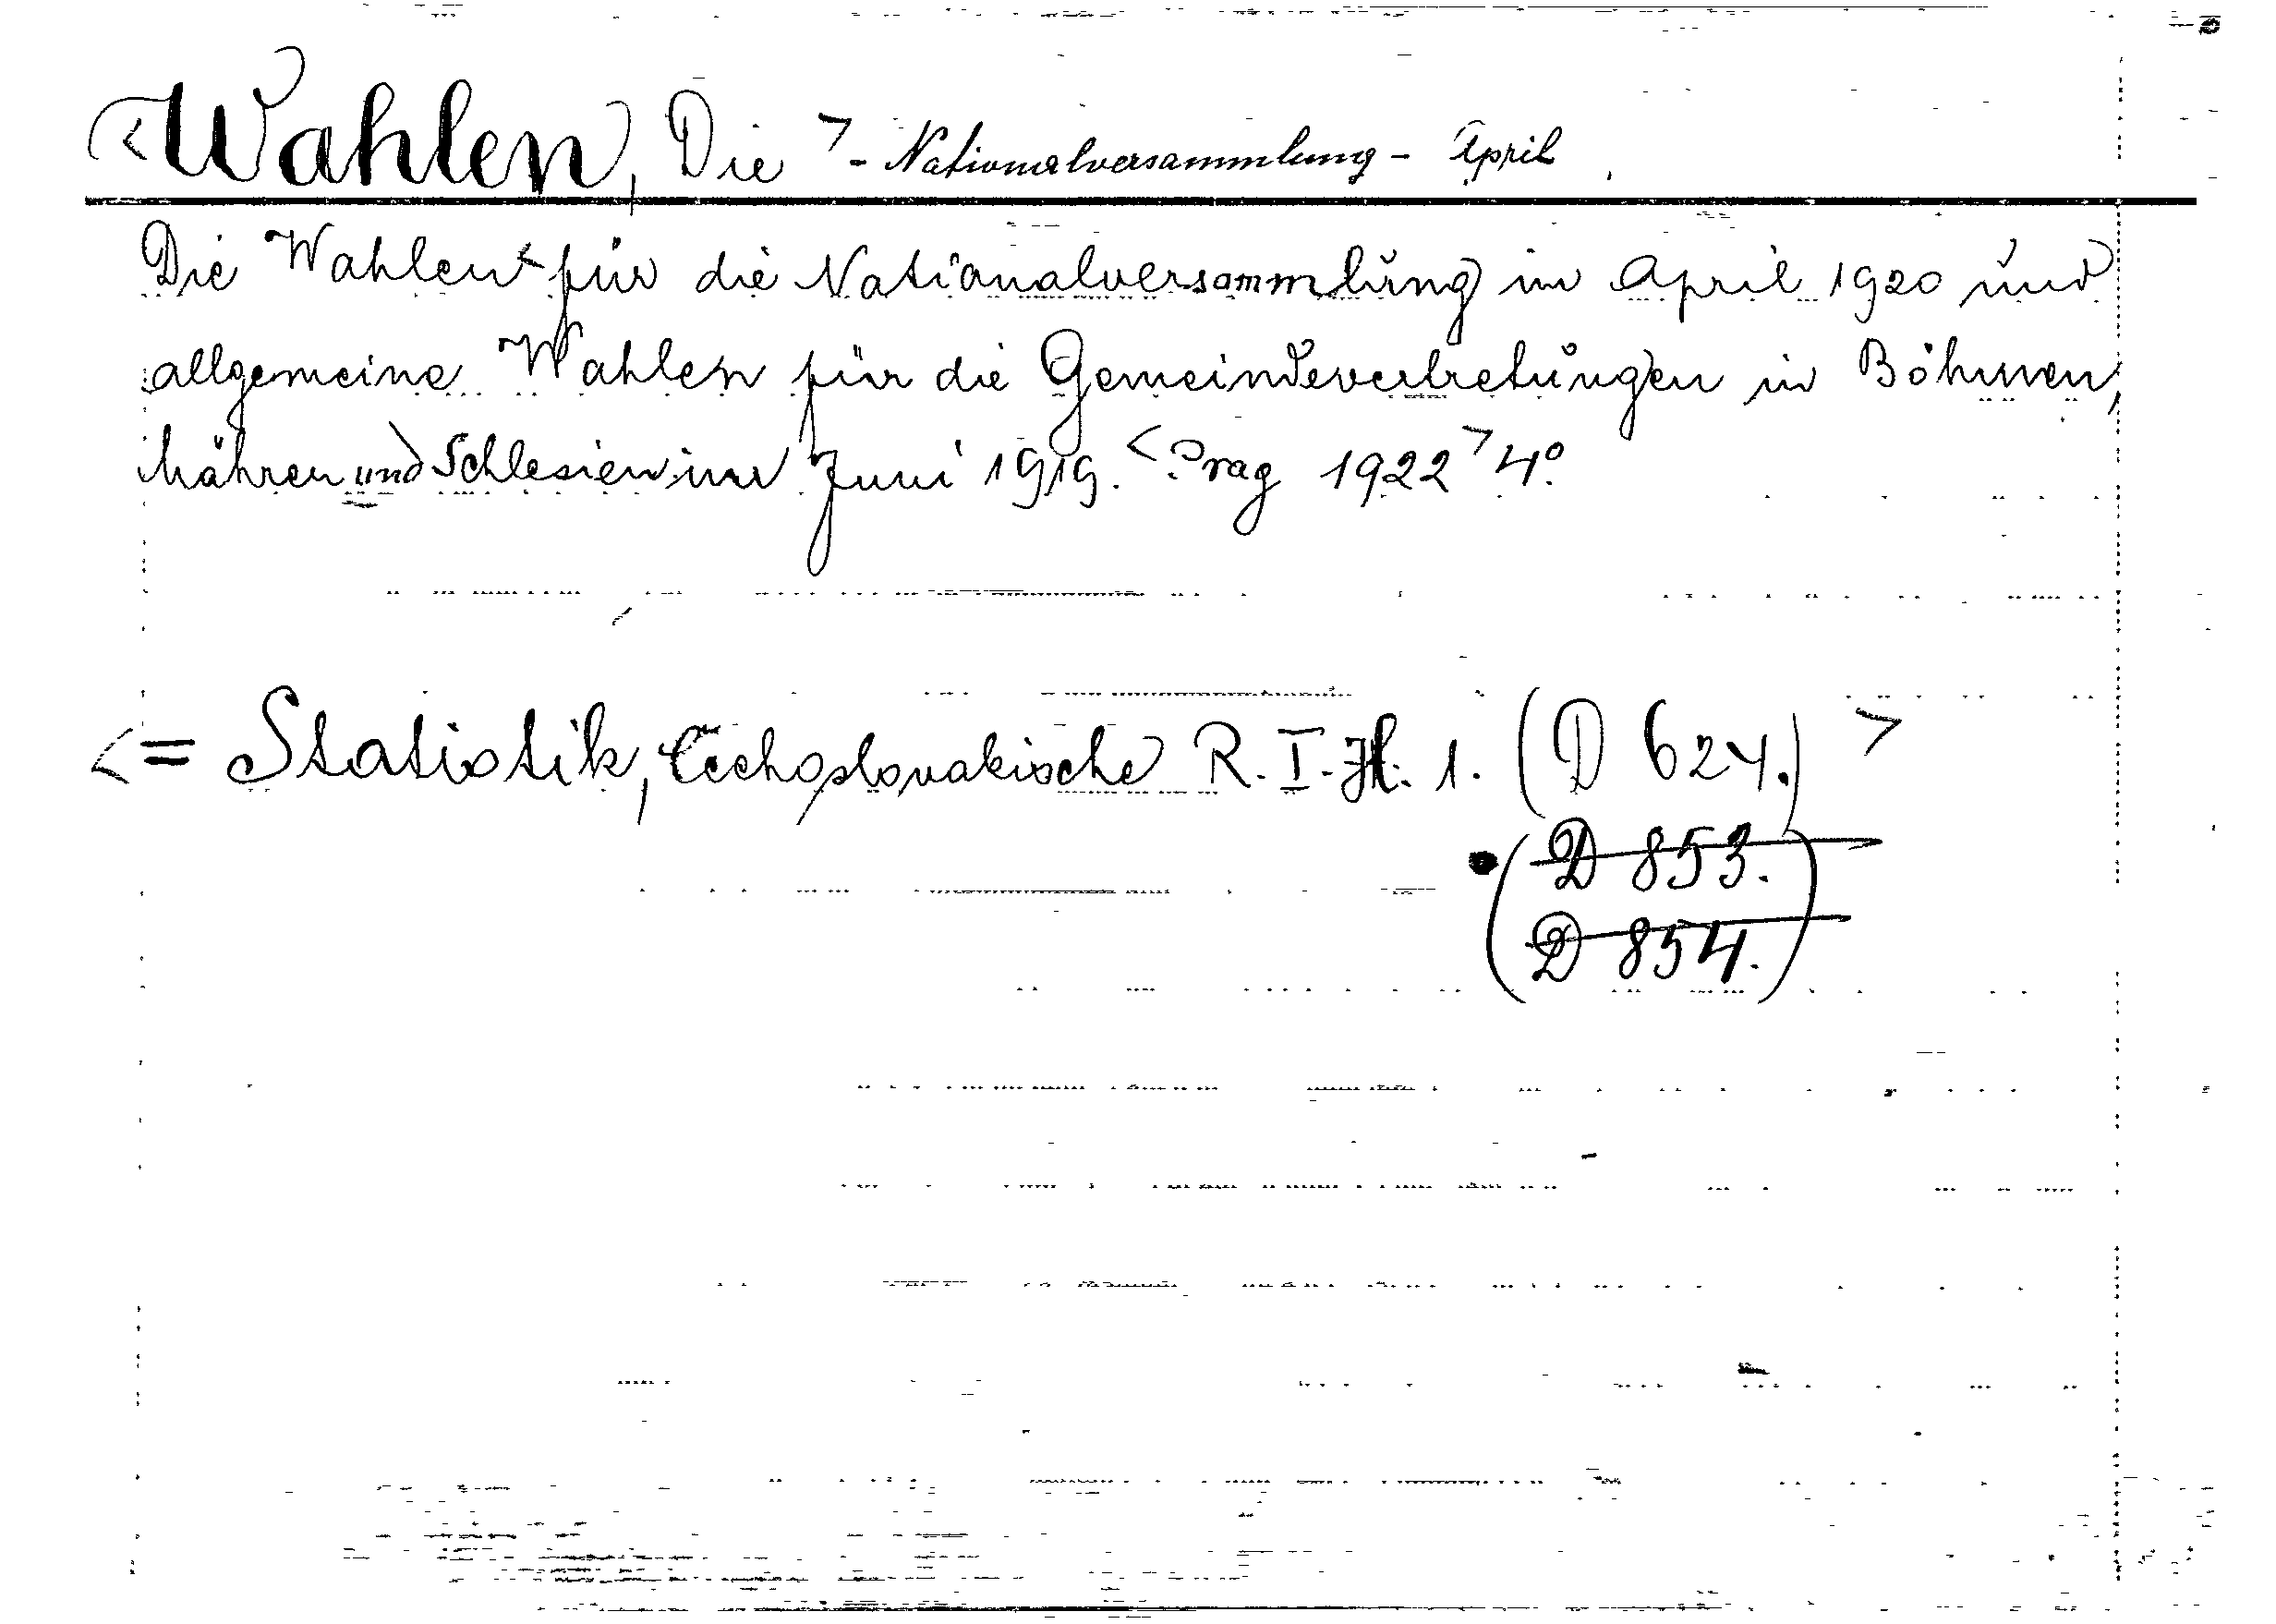 <Wahlen, Die> - Nationalversammlung - April
Die Wahlen < für die Nationalversammlung im April 1920 und
allgemeine Wahlen für die Gemeindevertretungen in Böhmen,
Mähren und Schlesien im Juni 1919. <Prag 1922> 4°.
<= Statistik, Čechoslovakische R. I. H. 1. (D 624.) >
(D 853.
D 854.)